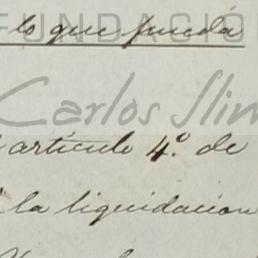 FUNDACIO
lo que pueda
Carlos Slim
artículo 4.º de
la liquidacion